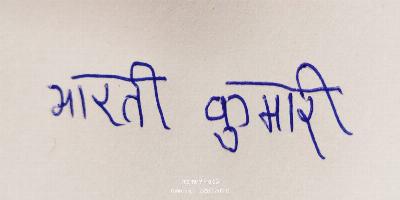 भारती कुमारी